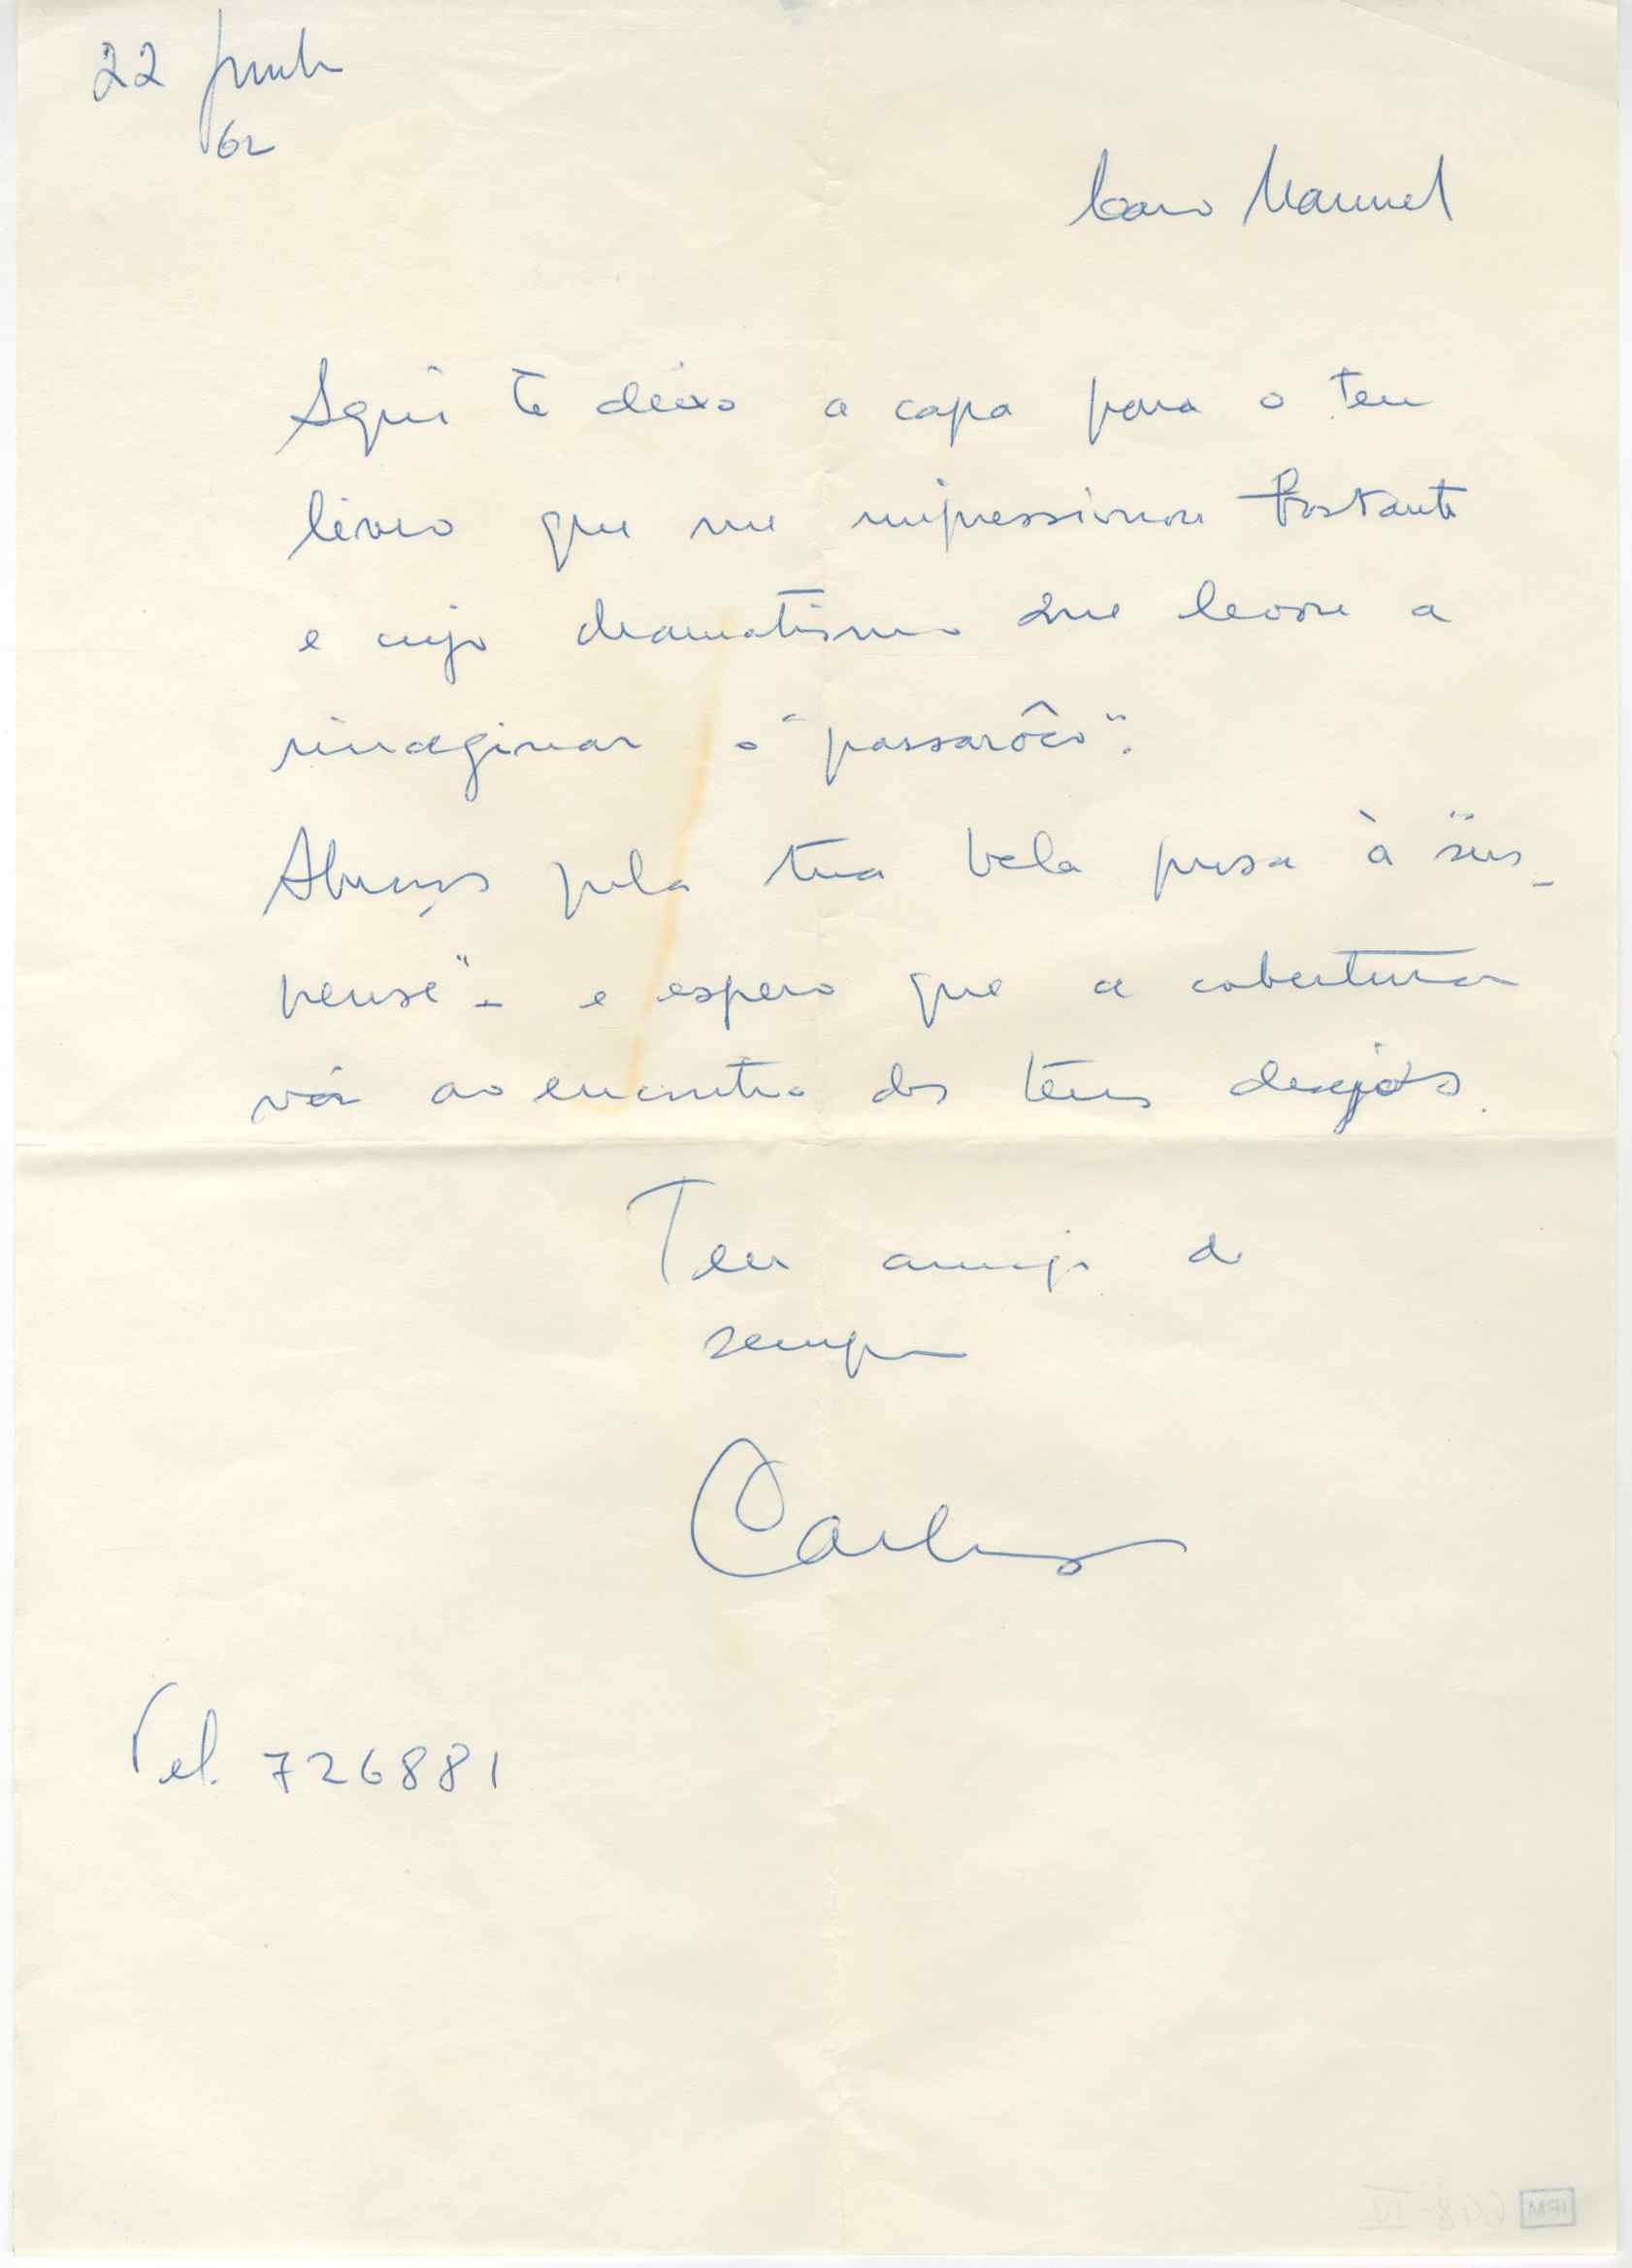 22 Junho
62
Caro Manuel
Aqui te deixo a capa para o teu
livro que me impressionou bastante
e cujo dramatismo me levou a
imaginar o "passarôco".
Abraços pela tua bela prosa à "sus-
pense" - e espero que a cobertura
vá ao encontro dos teus desejos.
Teu amigo de
sempre
Carlos
Tel. 726881